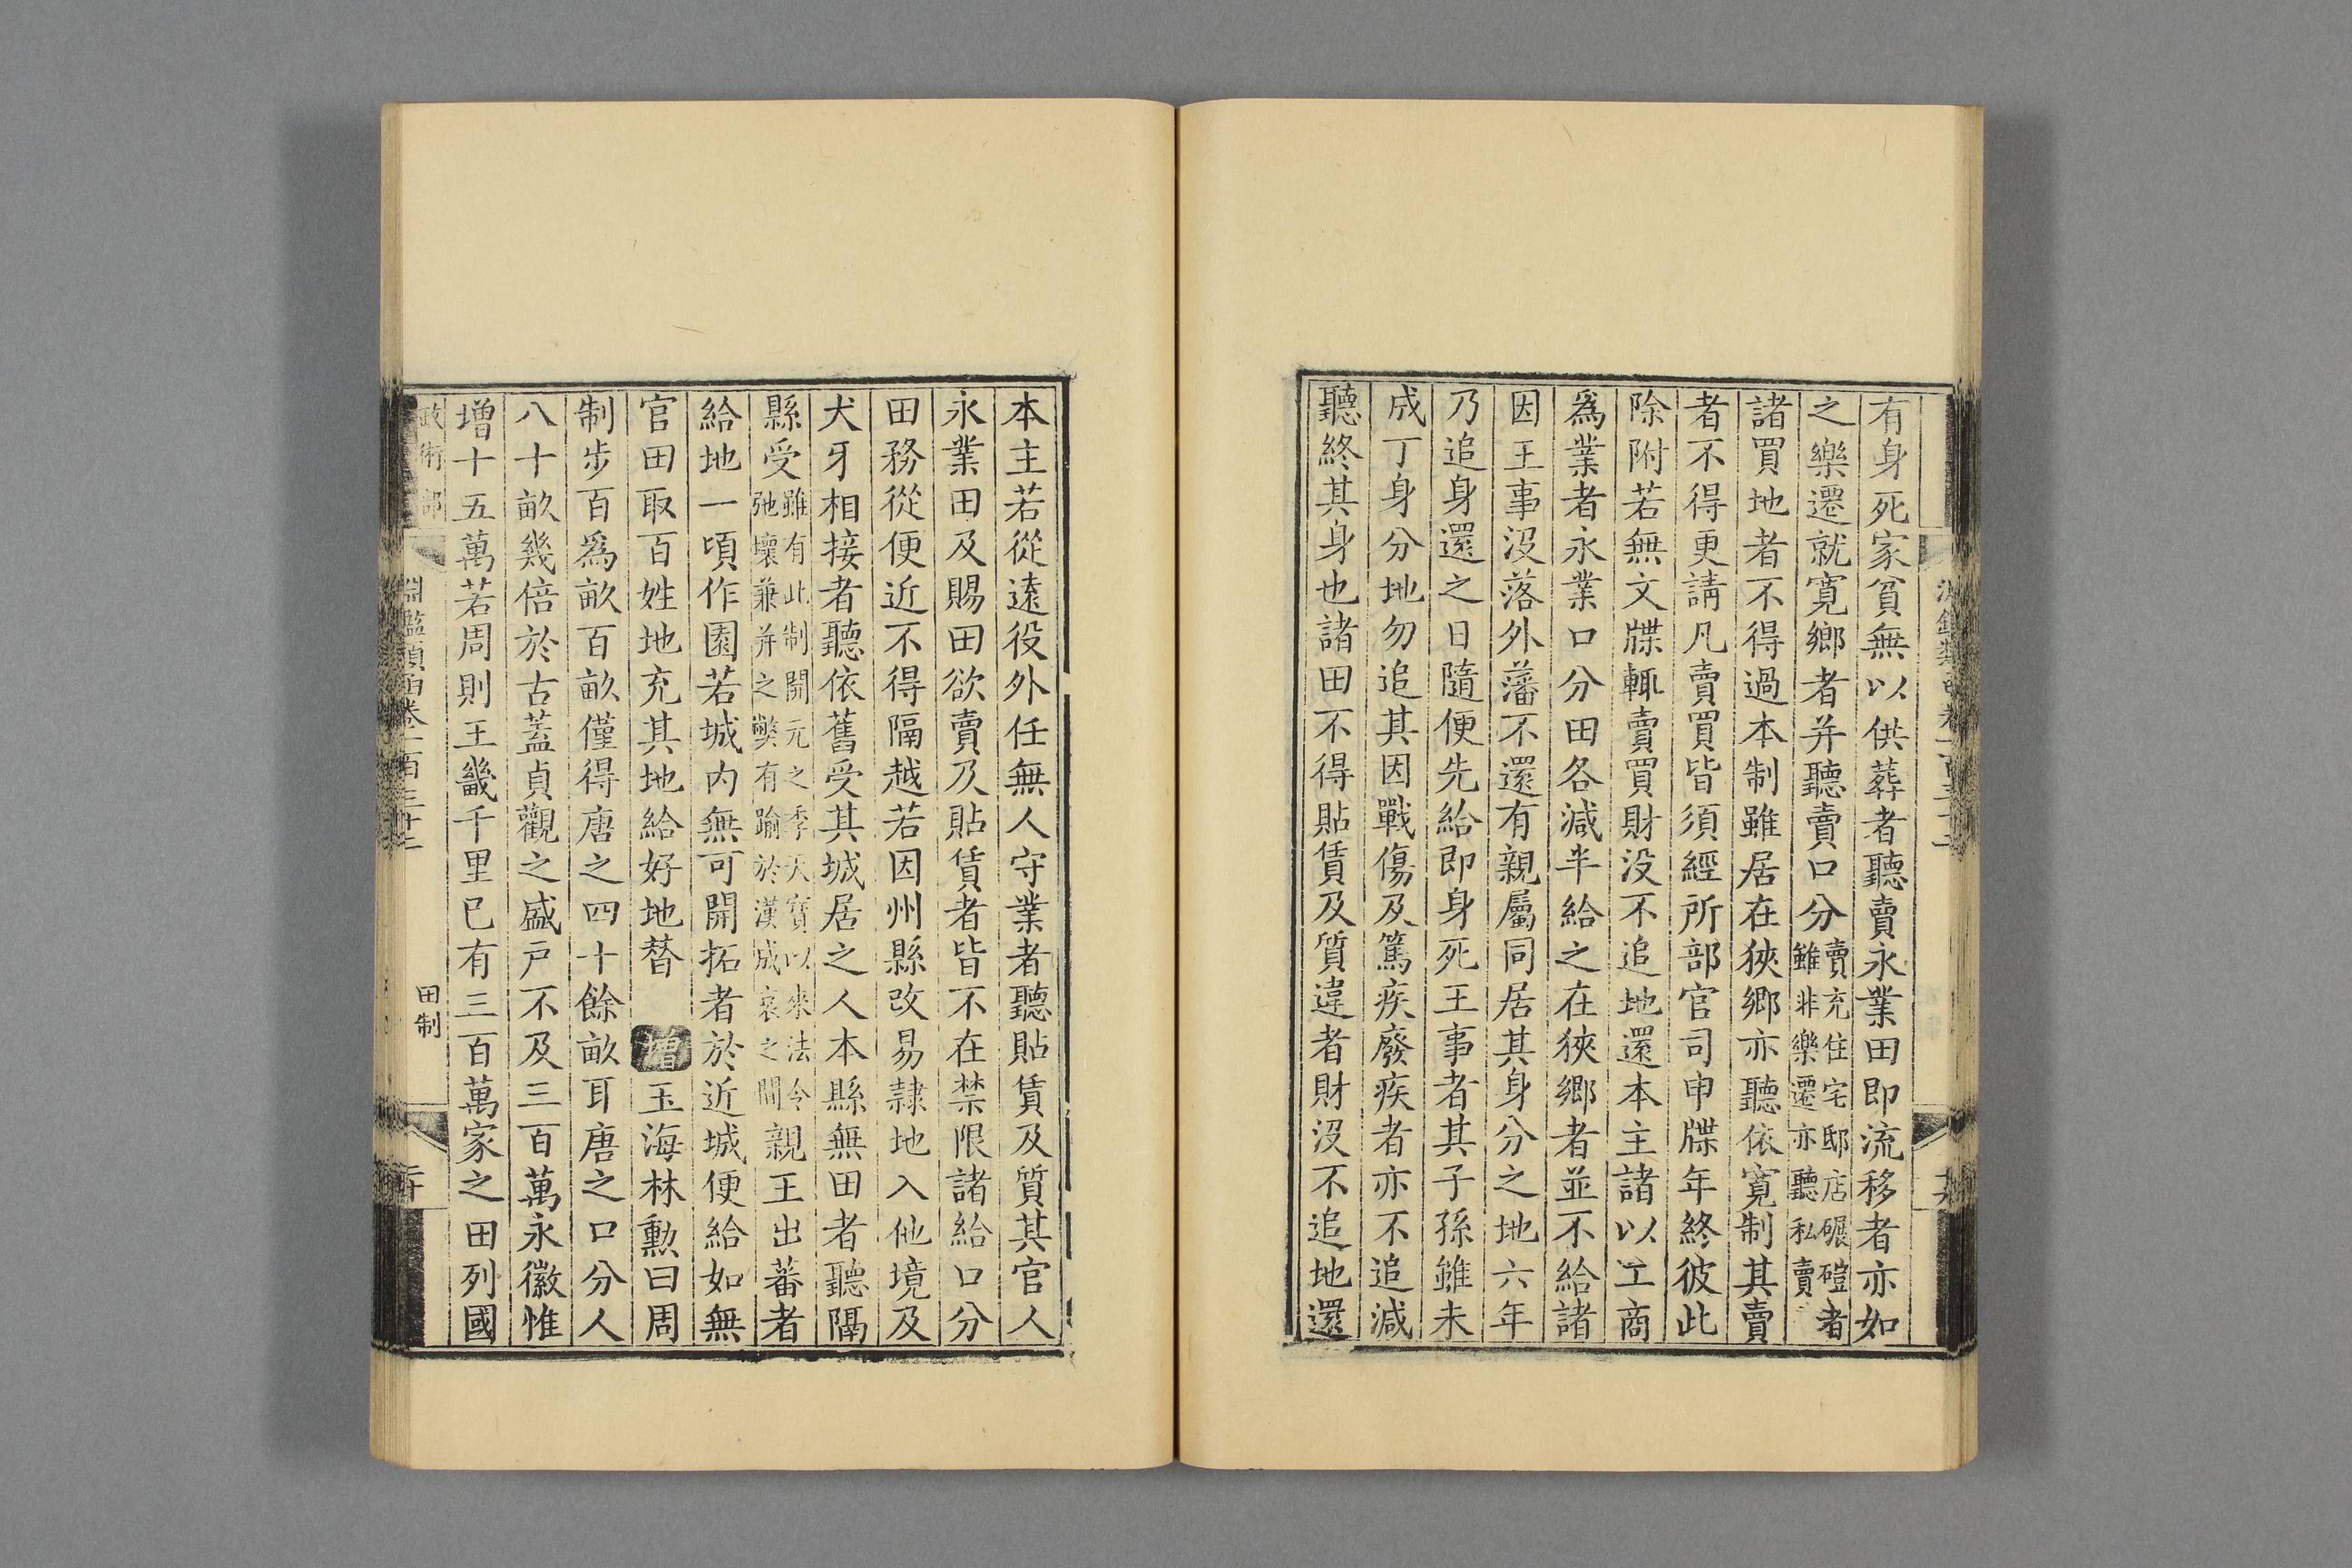 有身死家貧無以供葬者聽賣永業田即流移者亦如
之樂遷就寛鄉者并聽賣口分賣充住宅邸店碾磑者雖非樂遷亦聽私賣
諸買地者不得過本制雖居在狹鄉亦聽依寛制其賣
者不得更請凡賣買皆須經所部官司申牒年終彼此
除附若無文牒輒賣買財没不追地還本主諸以工商
爲業者永業口分田各減半給之在狹鄉者並不給諸
因王事沒落外藩不還有親屬同居其身分之地六年
乃追身還之日隨便先給即身死王事者其子孫雖未
成丁身分地勿追其因戰傷及篤疾廢疾者亦不追減
聽終其身也諸田不得貼賃及質違者財沒不追地還
本主若從遠役外任無人守業者聽貼賃及質其官人
永業田及賜田欲賣及貼賃者皆不在禁限諸給口分
田務從便近不得隔越若因州縣改易隷地入他境及
犬牙相接者聽依舊受其城居之人本縣無田者聽隔
縣受雖有此制開元之季天寶以來法令弛壞兼并之弊有踰於漢成哀之間親王出蕃者
給地一頃作園若城内無可開拓者於近城便給如無
官田取百姓地充其地給好地替 增 玉海林勲曰周
制步百爲畝百畝僅得唐之四十餘畝耳唐之口分人
八十畝幾倍於古蓋貞觀之盛戸不及三百萬永徽惟
增十五萬若周則王畿千里已有三百萬家之田列國
政術部 淵鑑類函卷一百三十七 田制 二十